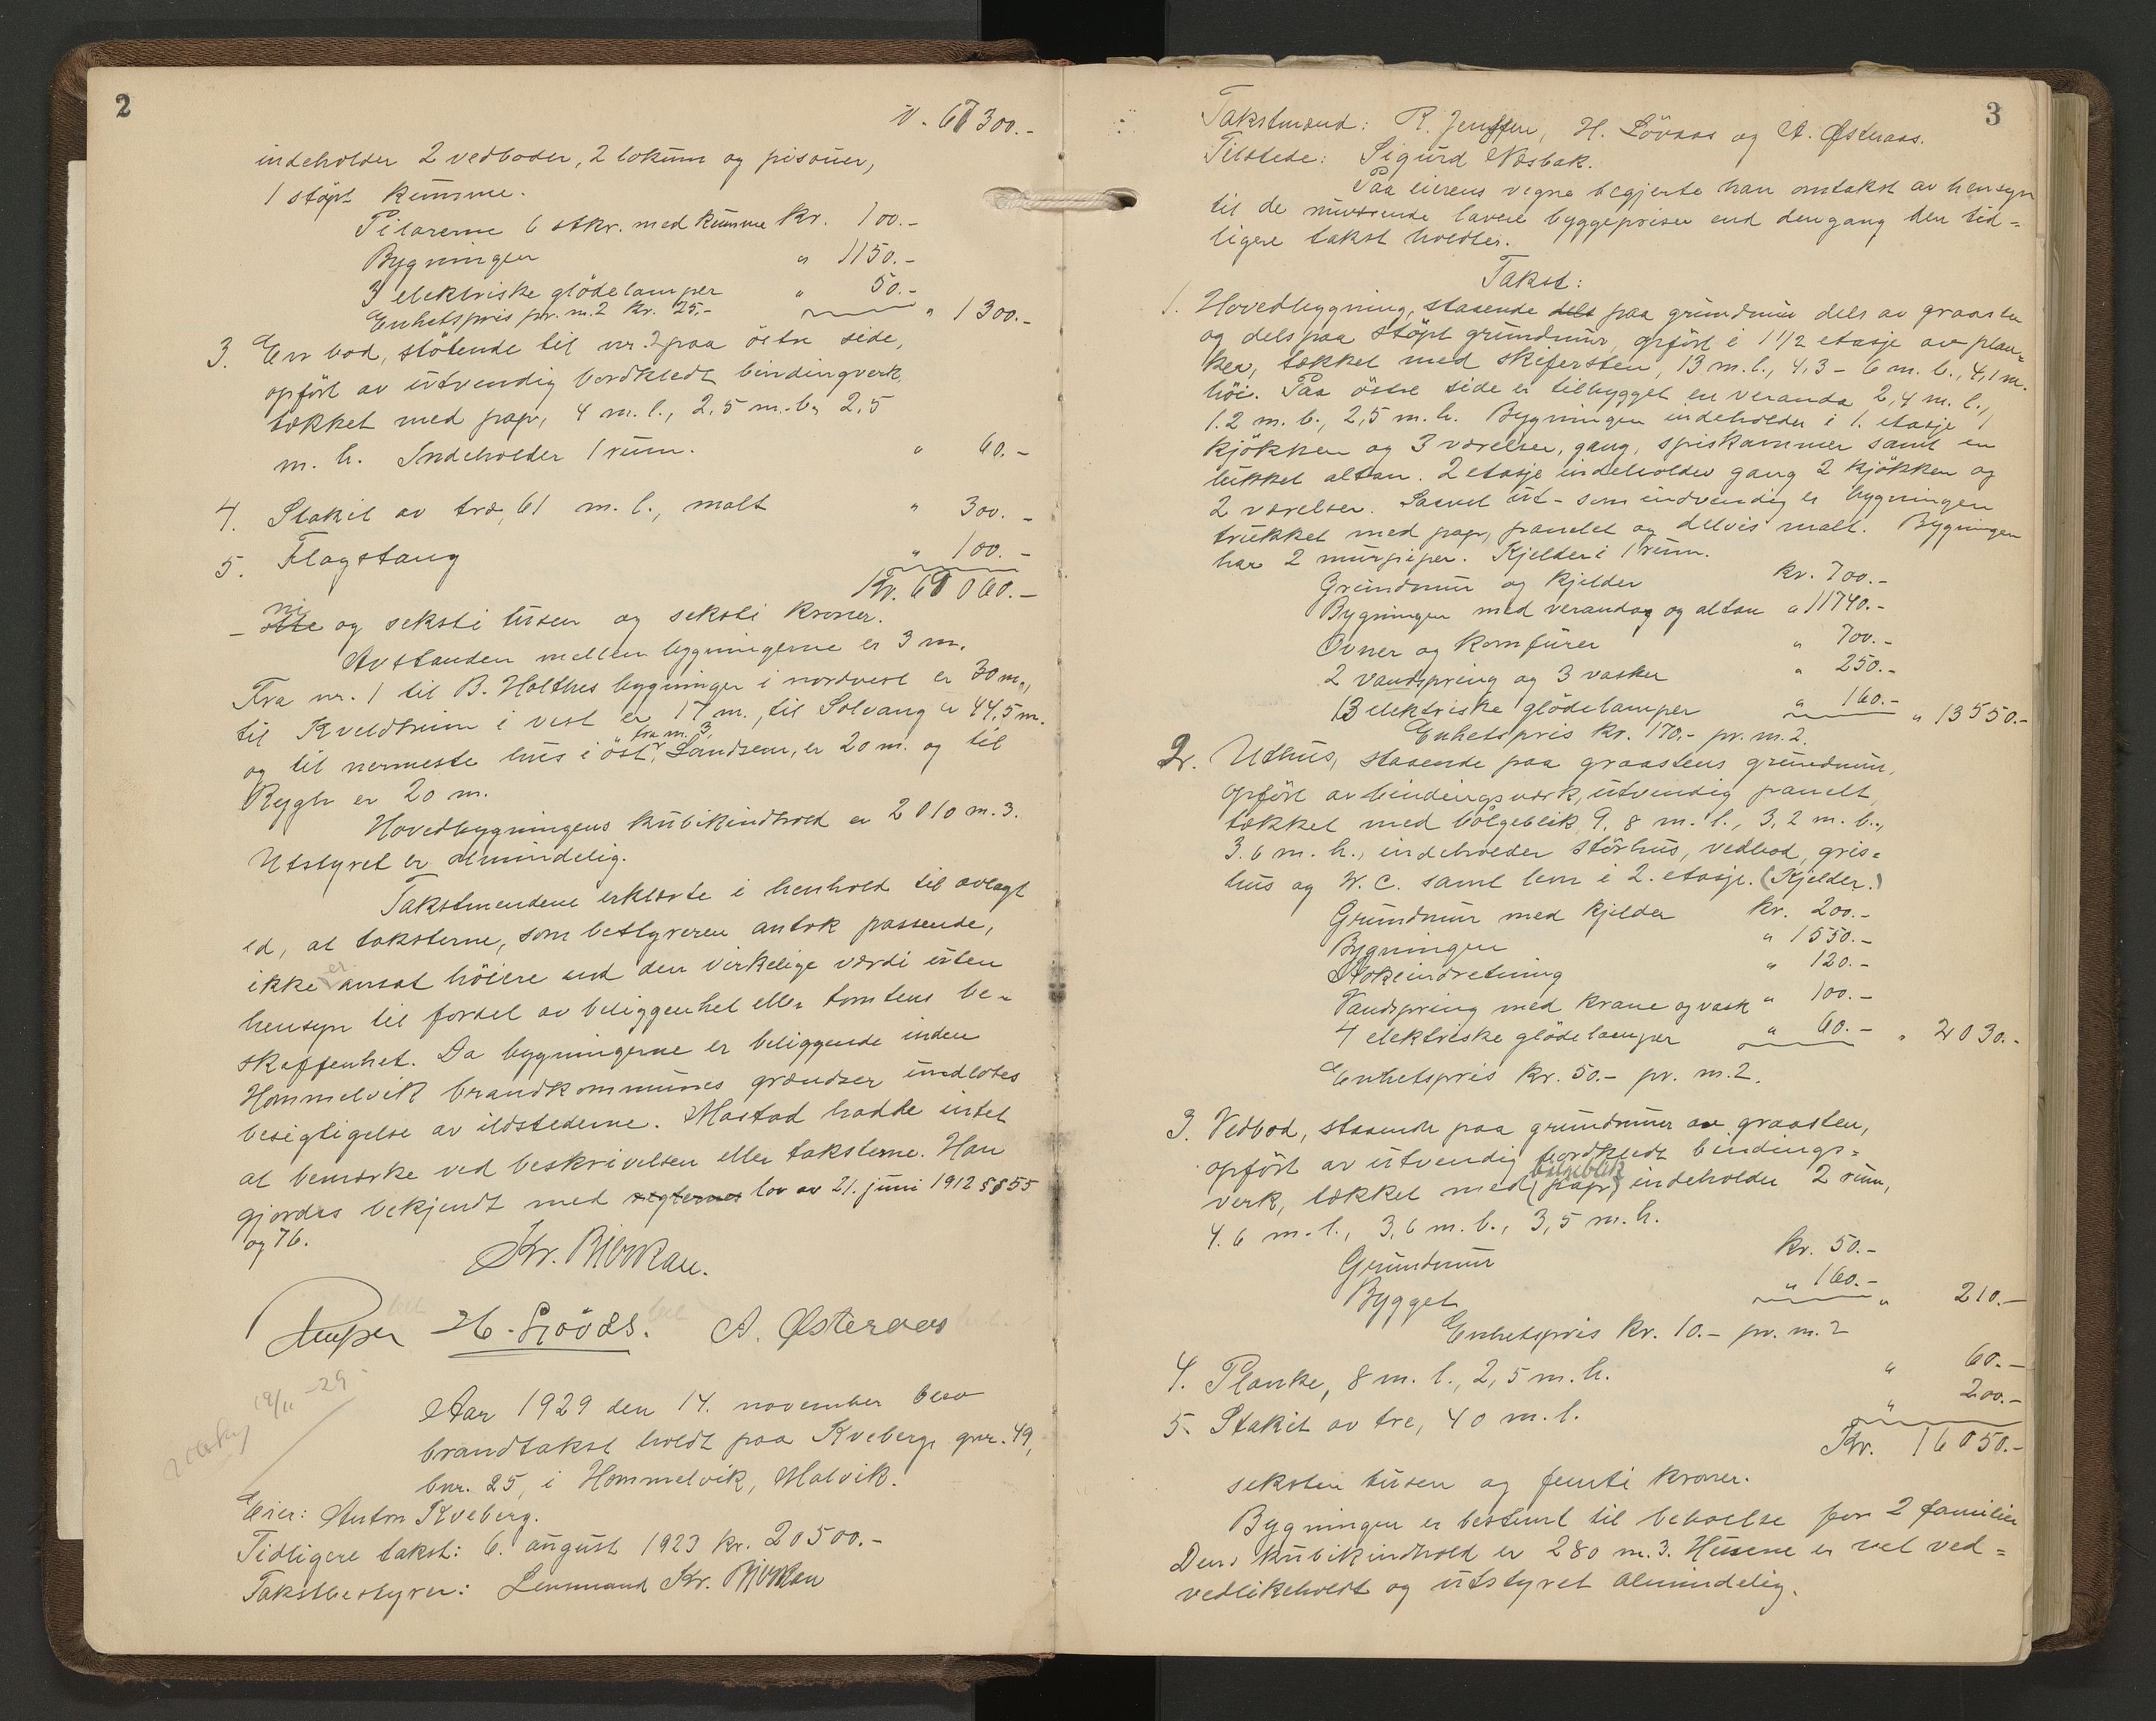 2
N. 67300.-
indeholder 2 vedboder, 2 lokum og pisouer,
1 støpt kumme.
Pilarerne 6 stkr. med kumme kr. 100.-
Bygningen " 1150.-
3 elektriske glödelamper " 50.-
Enhetspris pr. m.2 kr. 25.- " 1300.-
3. En bod, stötende til nr. 2 paa östre side,
opfört av utvendig bordkledt bindingverk,
tækket med pap, 4 m. l., 2,5 m. b., 2,5
m. h. Indeholder 1 rum. " 60.-
4. Stakit av træ, 61 m. l., malt " 300.-
5. Flagstang " 100.-
Kr. 69060.-
ni
- otte og seksti tusen og seksti kroner.
Avstanden mellem bygningerne er 3 m.
Fra nr. 1 til B. Holthes bygninger i nordvest er 30 m.,
til Kveldheim i vest er 17 m., til Solvang er 44,5 m.
fra nr. 3,
og til nermeste hus i öst, Landsem, er 20 m. og til
Rygh er 20 m.
Hovedbygningens kubikindhold er 2010 m.3.
Utstyret er almindelig.
Takstmendene erklærte i henhold til avlagt
ed, at taksterne, som bestyreren antok passende,
er
ikke ansat höiere end den virkelige værdi uten
hensyn til fordel av beliggenhet eller tomtens be-
skaffenhet. Da bygningerne er beliggende inden
Hommelvik brandkommunes grændser undlotes
besigtigelse av ildstederne. Mostad hadde intet
at bemærke ved beskrivelsen eller taksterne. Han
gjordes bekjendt med reglernes lov av 21. juni 1912 §§ 55
og 76.
Kr. Björkan.
H. Lövås. A. Østeraas
19/11 -29
Aar 1929 den 14. november blev
brandtakst holdt paa Kveberg, gnr. 49,
bnr. 25, i Hommelvik, Malvik.
Eier: Anton Kveberg.
Tidligere takst: 6. august 1923 kr. 20500.-
Takstbestyrer: Lensmand Kr. Björkan
3
Takstmænd: R. Jenssen, H. Lövaas og A. Østeraas.
Tilstede: Sigurd Næsbak.
Paa eierens vegne begjerte han omtakst av hensyn
til de nuværende lavere byggepriser end dengang den tid-
ligere takst holdtes.
Takst:
1. Hovedbygning, staaende dels paa grundmur dels av graasten
og dels paa støpt grundmur, opfört i 1 1/2 etasje av plan-
ker, tækket med skifersten, 13 m. l., 4,3 - 6 m. b., 4,1 m.
höi. Paa östre side er tilbygget en veranda 2,4 m. l.,
1.2 m. b., 2,5 m. h. Bygningen indeholder i 1. etasje 1
kjökken og 3 værelser, gang, spiskammer samt en
lukket altan. 2 etasje indeholder gang 2 kjökken og
2 værelser. Saavel ut- som indvendig er bygningen
trukket med pap, panelet og delvis malt. Bygningen
har 2 murpiper. Kjelder i 1 rum.
Grundmur og kjelder kr. 700.-
Bygningen med veranda og altan " 11740.-
Ovner og komfurer " 700.-
2 vandspring og 3 vasker " 250.-
13 elektriske glödelamper " 160.- " 13550.-
Enhetspris kr. 170.- pr. m.2.
2. Uthus, staaende paa graastens grundmur,
opfört av bindingsverk, utvendig panelt,
tækket med bölgeblik, 9.8 m. l., 3,2 m. b.,
3.6 m. h., indeholder störhus, vedbod, gris-
hus og W. C. samt lem i 2. etasje. (Kjelder.)
Grundmur med kjelder kr. 200.-
Bygningen " 1550.-
Kokeindretning " 120.-
Vandspring med krane og vask " 100.-
4 elektriske glödelamper " 60.- " 2030.-
Enhetspris kr. 50.- pr. m.2.
3. Vedbod, staaende paa grundmur av graasten,
opfört av utvendig bordkledt bindings-
bølgeblik
verk, tækket med (pap) indeholder 2 rum,
4.6 m. l., 3,6 m. b., 3,5 m. h.
Grundmur kr. 50.-
Bygget " 160.- " 210.-
Enhetspris kr. 10.- pr. m.2
4. Planke, 8 m. l., 2,5 m. h. " 60.-
5. Stakit av tre, 40 m. l. " 200.-
Kr. 16050.-
seksten tusen og femti kroner.
Bygningen er bestemt til beboelse for 2 familier
Dens kubikindhold er 280 m.3. Husene er vel ved-
vedlikeholdt og utstyret almindelig.